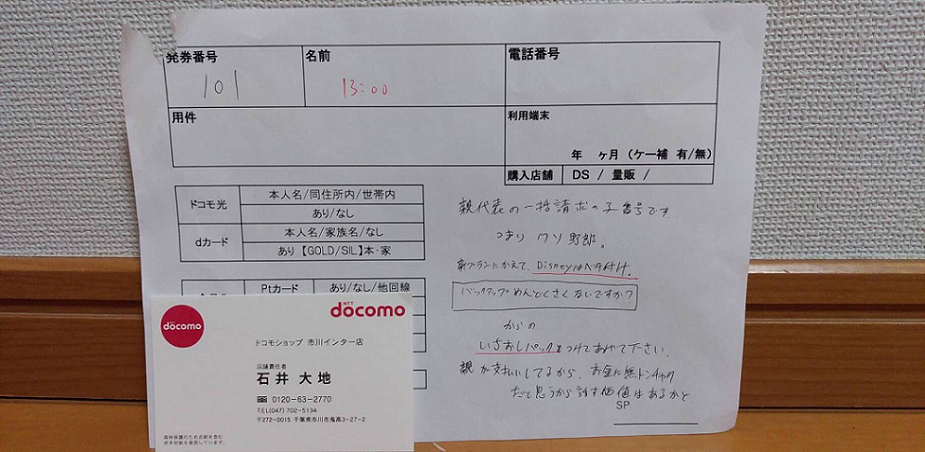 発券番号
101
名前
13:00
電話番号
用件
利用端末
年 ヶ月 (ケー補 有/無)
購入店舗
DS / 量販 /
ドコモ光
本人名/同住所内/世帯内
あり/なし
dカード
本人名/家族名/なし
あり【GOLD/SIL】本・家
Ptカード
あり/なし/他回線
親代表の一括請求の子番号です
つまり クソ野郎。
新プランにかえて、Disneyはベタ付け。
バックアップめんどくさくないですか?
からの
いちおしパックをつけてあげて下さい。
親が支払いしてるから、お金に無トンチャク
だと思うから話す価値はあるかと
SP
döcomo
NTT
döcomo
ドコモショップ 市川インター店
店舗責任者
石井 大地
0120-63-2770
TEL(047) 702-5134
〒272-0015 千葉県市川市鬼高3-27-2